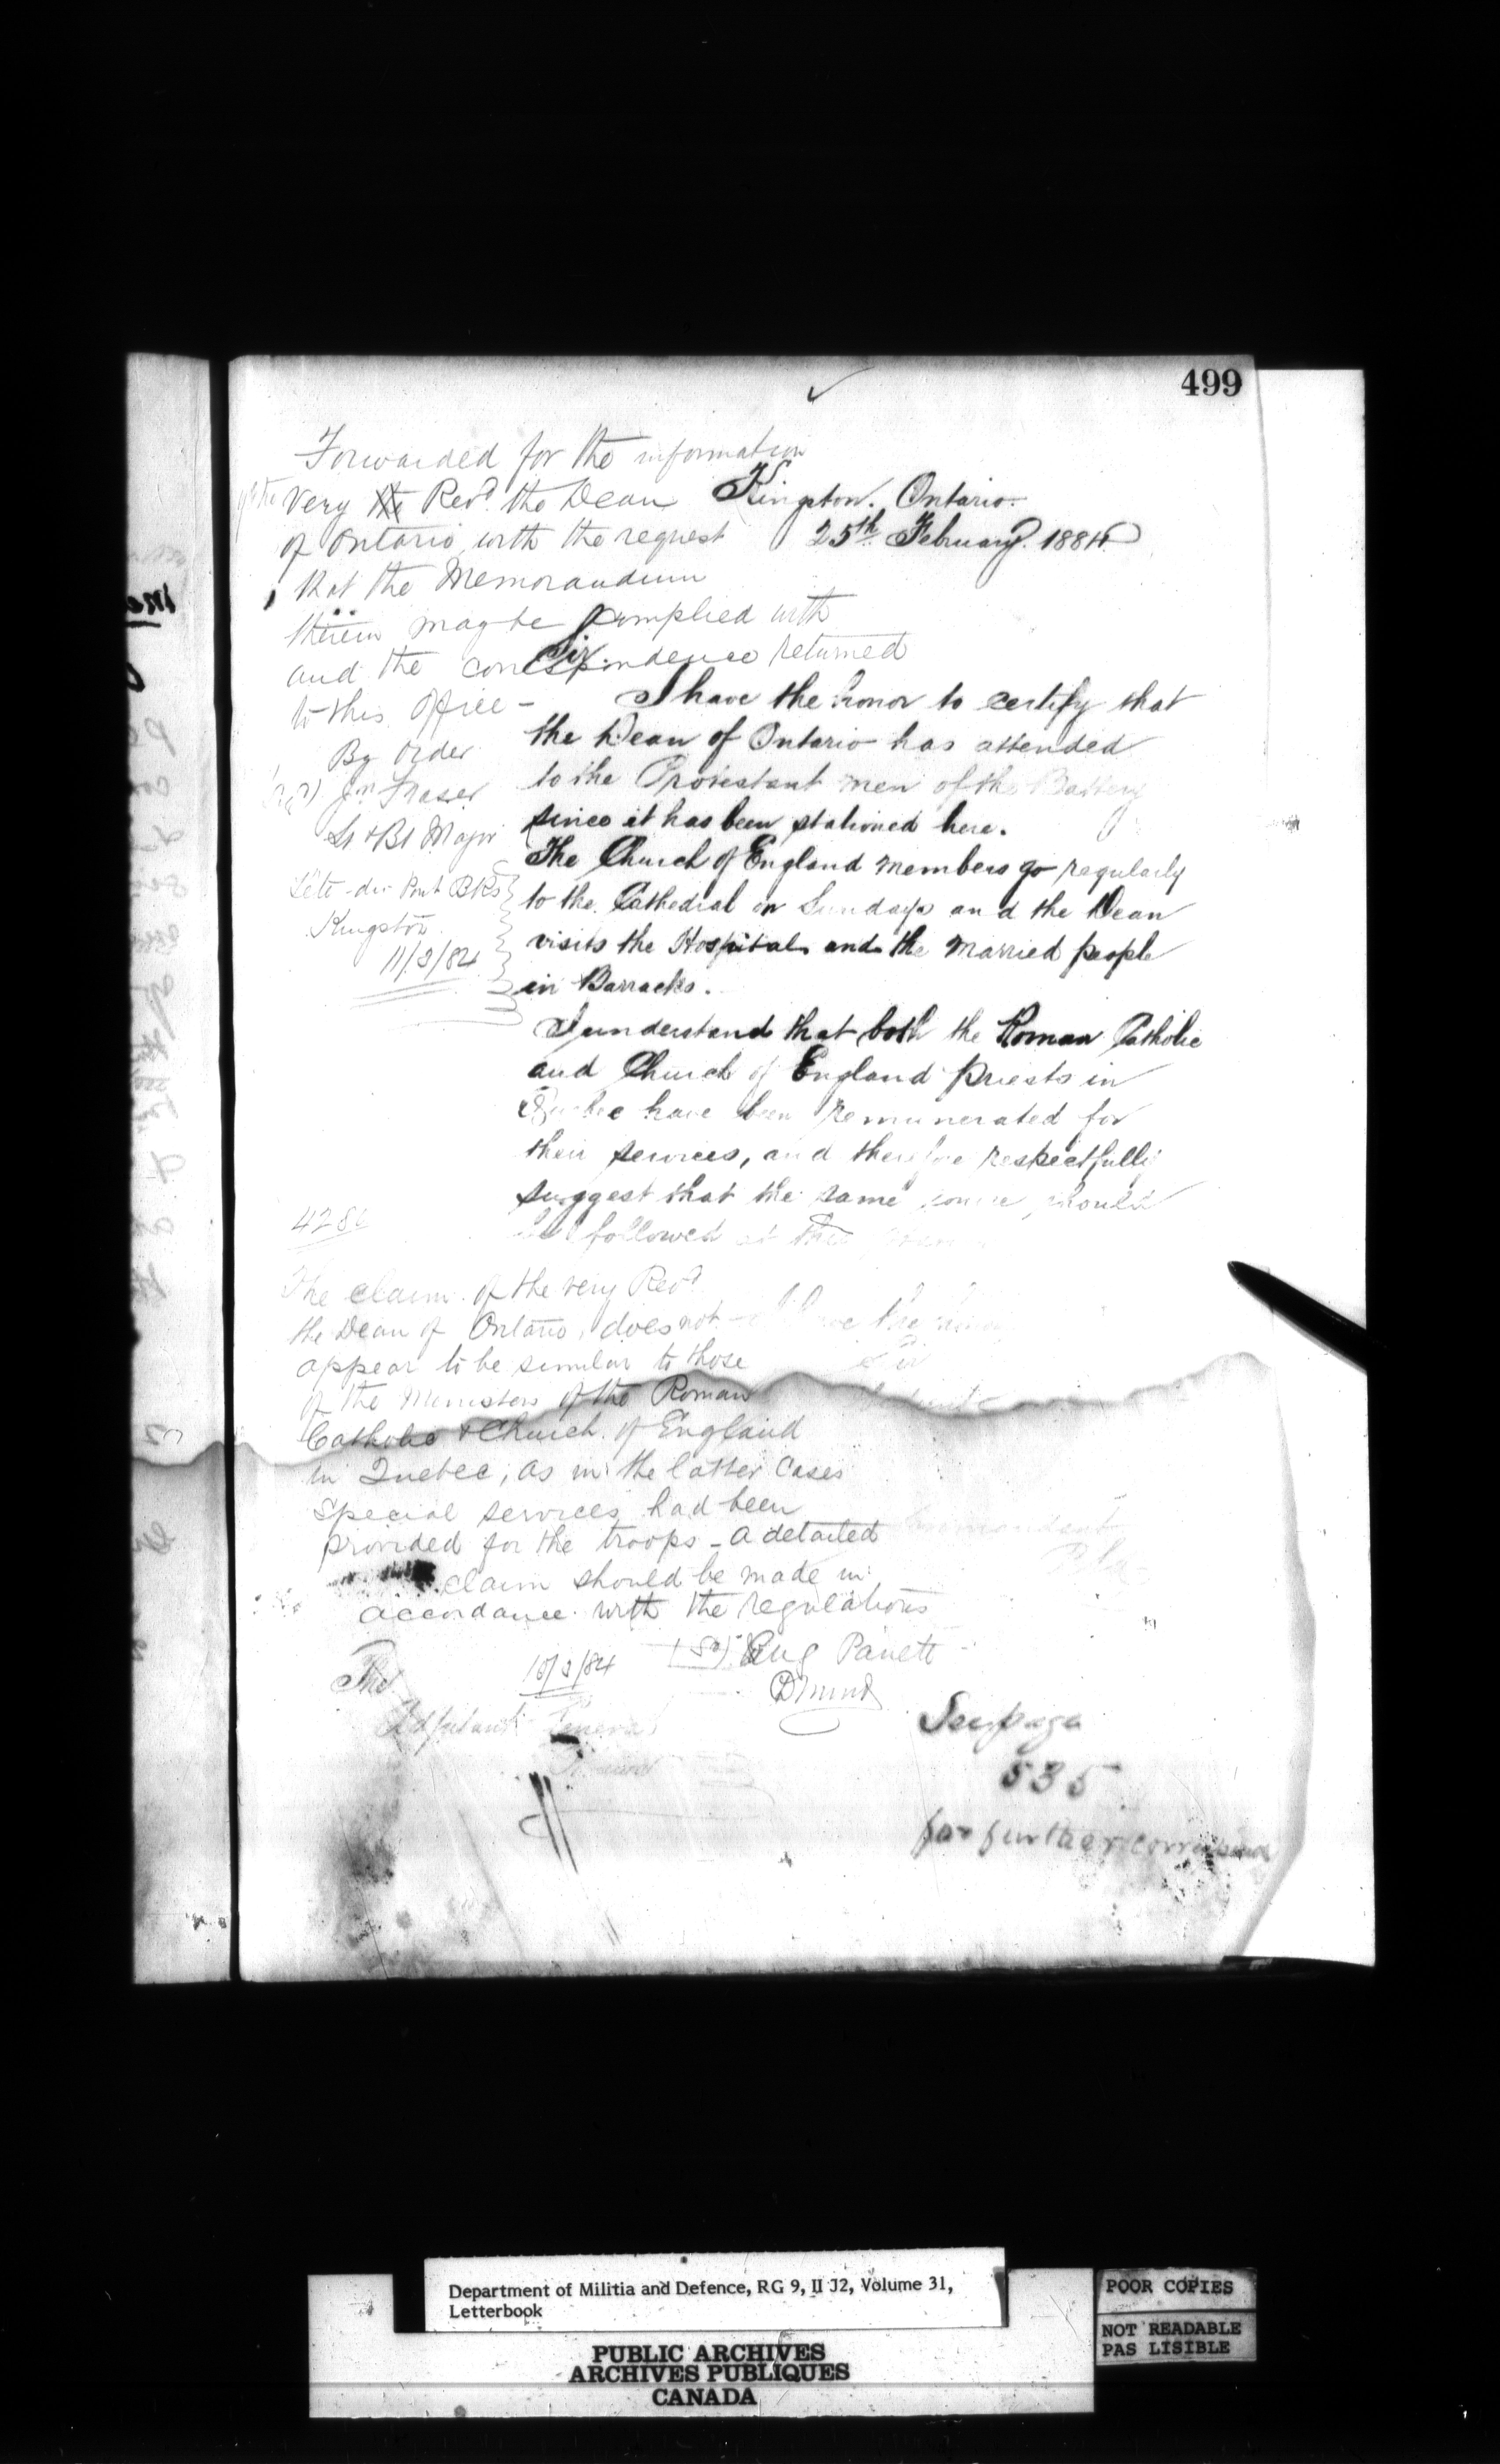 499
Forwarded for the information
of the Very the Revd. the Dean
of Ontario with the request
that the Memorandum
therein may be complied with
and the correspondence returned
to this Office -
By Order
Jn Fraser
Lt & Bt Major
Tête-du-Pont Bks
Kingston
11/3/84
Kingston. Ontario.
25th February. 1884
Sir.
I have the honor to certify that
the Dean of Ontario has attended
to the Protestant men of the Battery
since it has been stationed here.
The Church of England members go regularly
to the Cathedral on Sundays and the Dean
visits the Hospital and the married people
in Barracks.
I understand that both the Roman Catholic
and Church of England Priests in
Quebec have been remunerated for
their services, and therefore respectfully
suggest that the same course should
be followed at this
I have the honor
Sir
The claim of the very Revd
the Dean of Ontario, does not
appear to be similar to those
of the Ministers of the Roman
Catholic & Church of England
in Quebec, as in the latter cases
special services had been
provided for the troops - a detailed
claim should be made in
accordance with the regulations
(Sd) Eug Panett
10/3/84
DMMD
Commandant
The
Adjutant General
See page
535
for further correspond
Department of Militia and Defence, RG 9, II J2, Volume 31,
Letterbook
PUBLIC ARCHIVES
ARCHIVES PUBLIQUES
CANADA
POOR COPIES
NOT READABLE
PAS LISIBLE